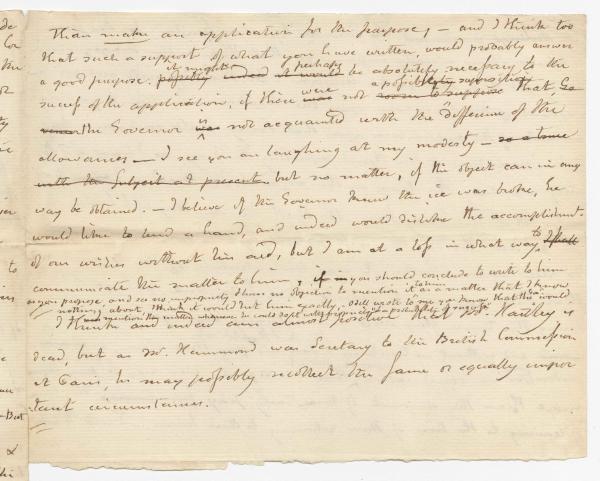 than make an application for the purpose, – and I think too
that such a support of what you have written, would probably answer
a good purpose. it might perhaps be absolutely necessary to the
success of the application, if there were not a possibility that
the Governor is not acquainted with the deficiency of the
allowances – I see you are laughing at my modesty – so a truce
with the subject at present but no matter, if the object can in any
way be obtained. – I believe if the Governor knew the ice was broke, he
would like to lend a hand, and indeed would dislike the accomplishment
of our wishes without his aid, but I am at a loss in what way to
communicate this matter to him, if you should conclude to write to him
on your purpose, and see no impropriety I have no objection to mention it to him as a matter that I know
nothing about. I think it would hit him exactly,
I think and indeed am almost positive that Mr. Hartley is
dead, but as Mr. Hammond was Secretary to the British Commission
at Paris, he may possibly recollect the same or equally impor
tant circumstances.